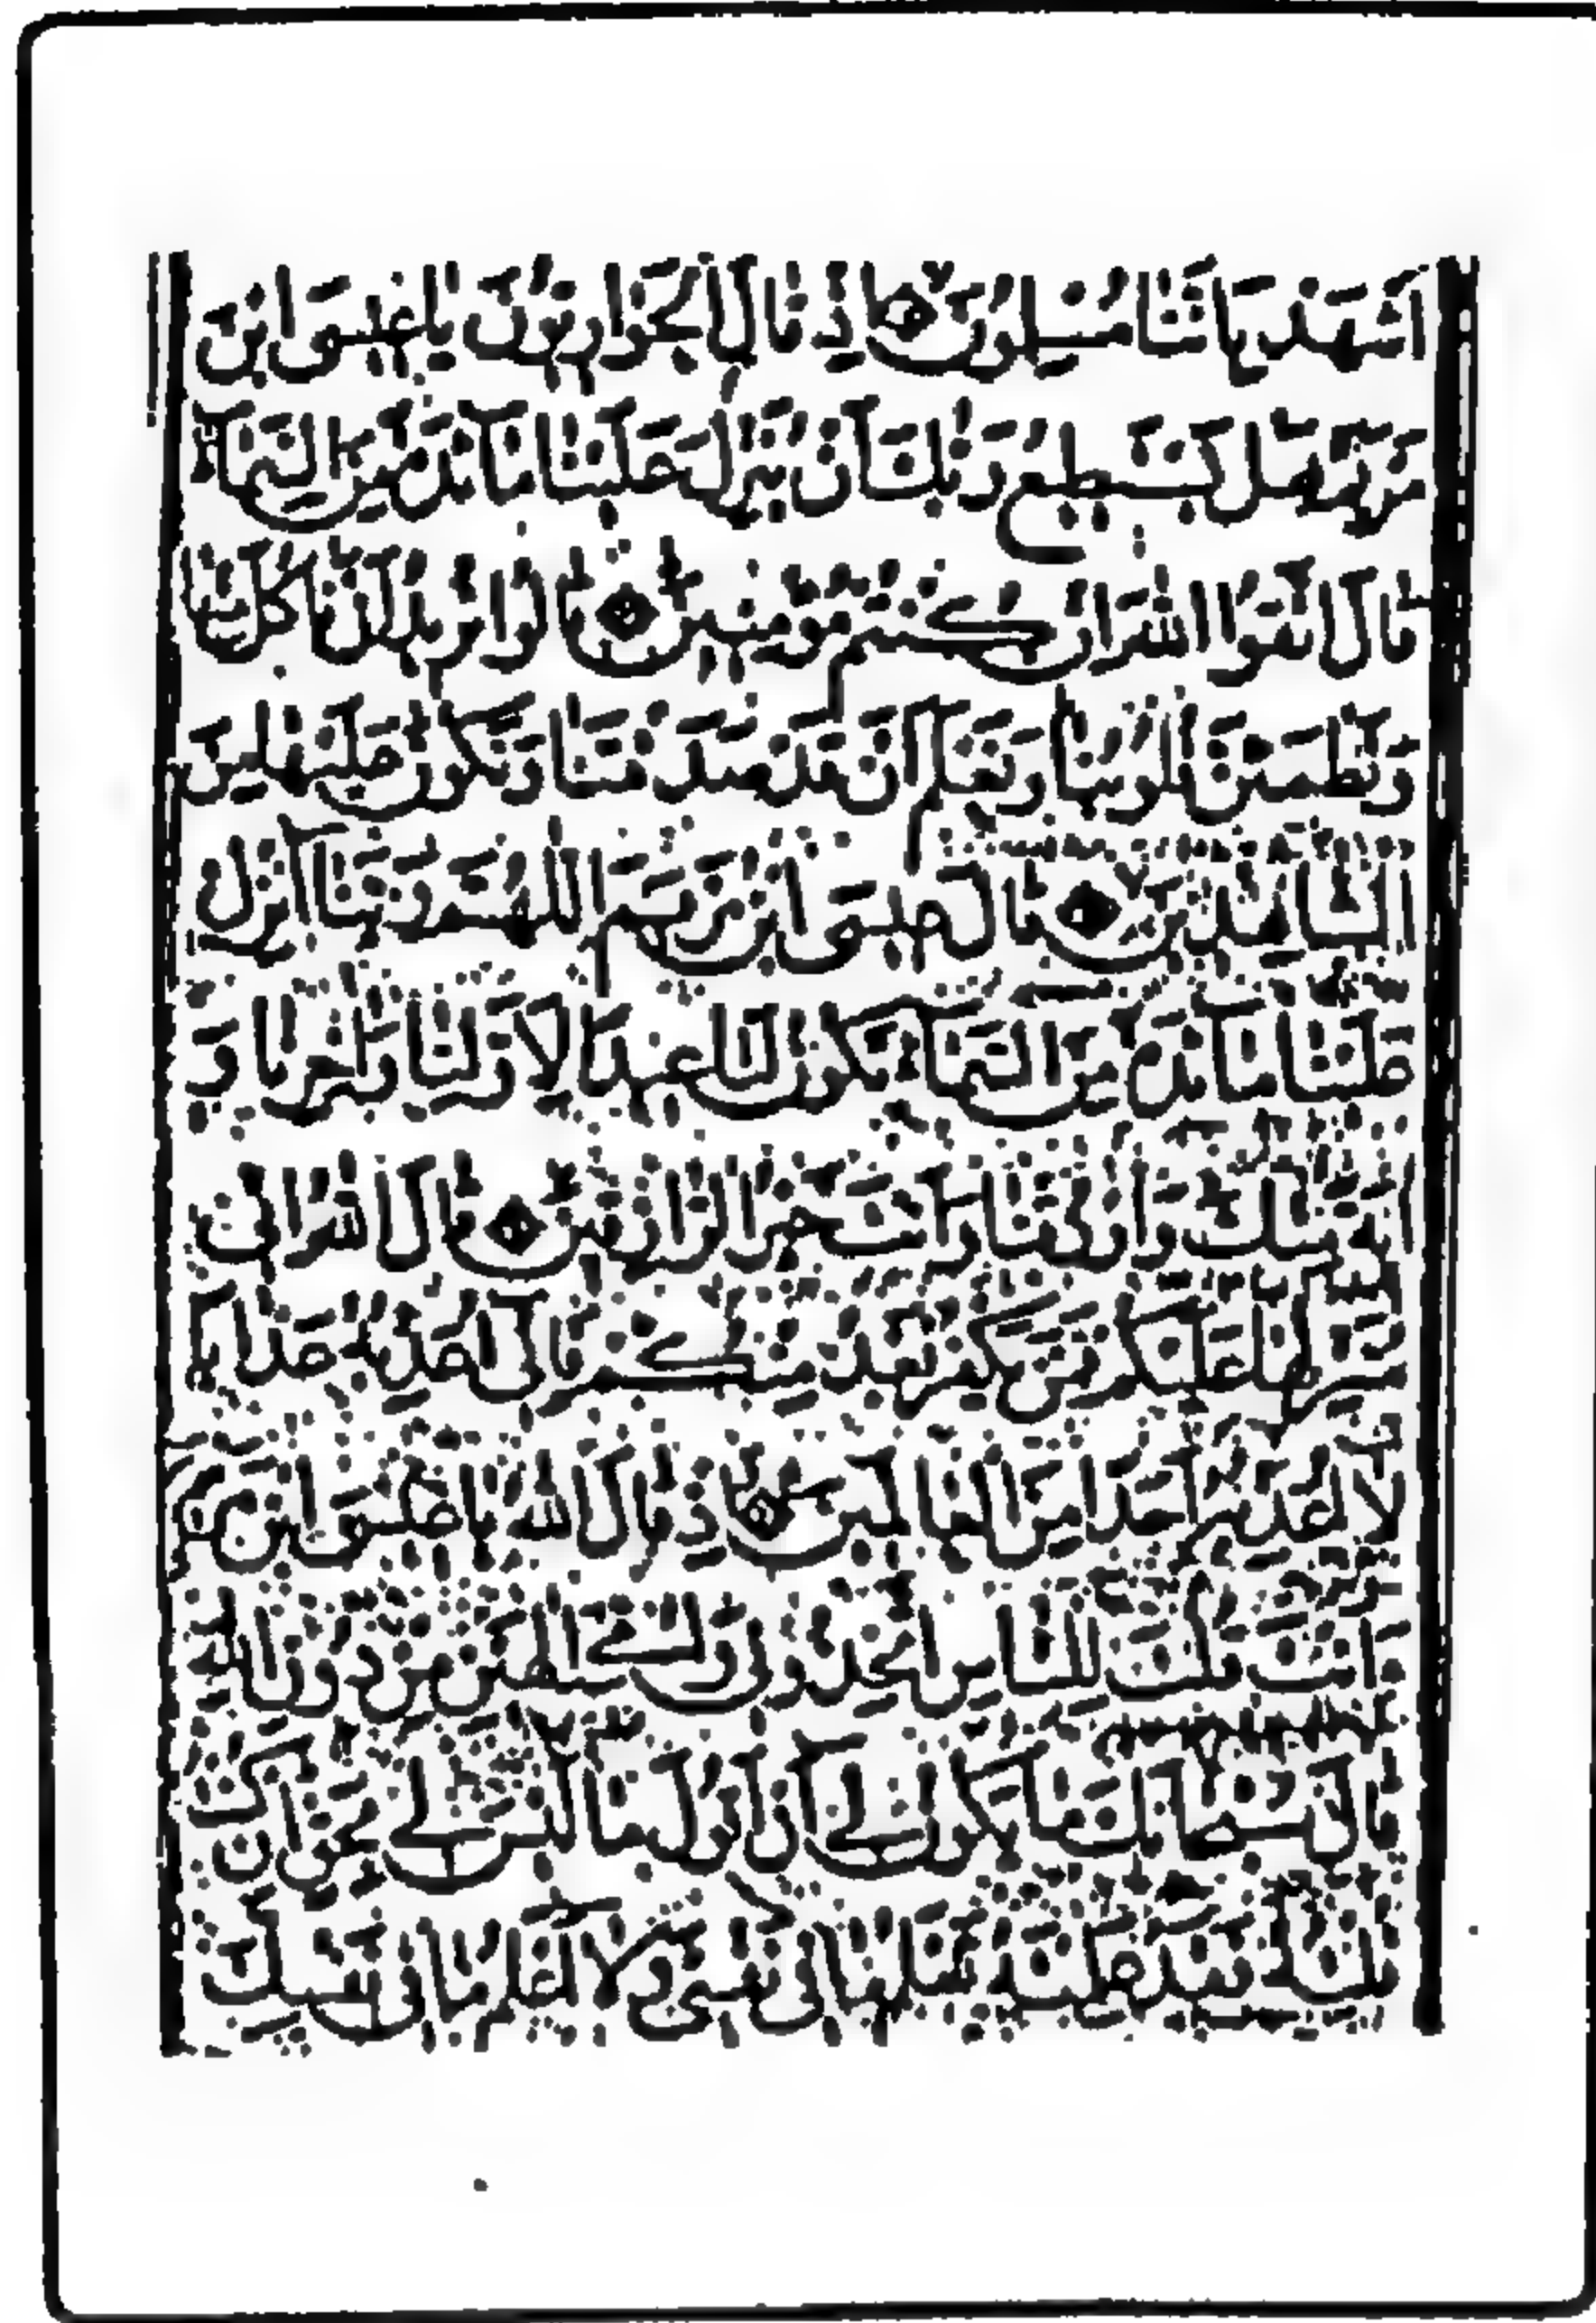 اشْهَدْ بِاَنَّنَا مُسْلِمُونَ اِذْ قَالَ الْحَوَارِيُّونَ يَا عِيسَى ابْنَ
مَرْيَمَ هَلْ يَسْتَطِيعُ رَبُّكَ اَنْ يُنَزِّلَ عَلَيْنَا مَائِدَةً مِنَ السَّمَاءِ
قَالَ اتَّقُوا اللهَ اِنْ كُنْتُمْ مُؤْمِنِينَ قَالُوا نُرِيدُ اَنْ نَاْكُلَ مِنْهَا
وَتَطْمَئِنَّ قُلُوبُنَا وَنَعْلَمَ اَنْ قَدْ صَدَقْتَنَا وَنَكُونَ عَلَيْهَا مِنَ
الشَّاهِدِينَ قَالَ عِيسَى ابْنُ مَرْيَمَ اللّٰهُمَّ رَبَّنَا اَنْزِلْ
عَلَيْنَا مَائِدَةً مِنَ السَّمَاءِ تَكُونُ لَنَا عِيدًا لِاَوَّلِنَا وَاٰخِرِنَا وَ
اٰيَةً مِنْكَ وَارْزُقْنَا وَاَنْتَ خَيْرُ الرَّازِقِينَ قَالَ اللهُ اِنِّي
مُنَزِّلُهَا عَلَيْكُمْ فَمَنْ يَكْفُرْ بَعْدُ مِنْكُمْ فَاِنِّي اُعَذِّبُهُ عَذَابًا
لَا اُعَذِّبُهُ اَحَدًا مِنَ الْعَالَمِينَ وَاِذْ قَالَ اللهُ يَا عِيسَى ابْنَ مَرْيَمَ
ءَاَنْتَ قُلْتَ لِلنَّاسِ اتَّخِذُونِي وَاُمِّيَ اِلٰهَيْنِ مِنْ دُونِ اللهِ
قَالَ سُبْحَانَكَ مَا يَكُونُ لِي اَنْ اَقُولَ مَا لَيْسَ لِي بِحَقٍّ اِنْ كُنْتُ
قُلْتُهُ فَقَدْ عَلِمْتَهُ تَعْلَمُ مَا فِي نَفْسِي وَلَا اَعْلَمُ مَا فِي نَفْسِكَ